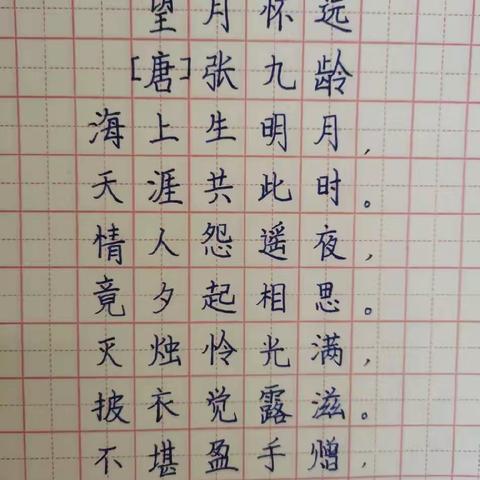 望月怀远
[唐]张九龄
海上生明月，
天涯共此时。
情人怨遥夜，
竟夕起相思。
灭烛怜光满，
披衣觉露滋。
不堪盈手赠，